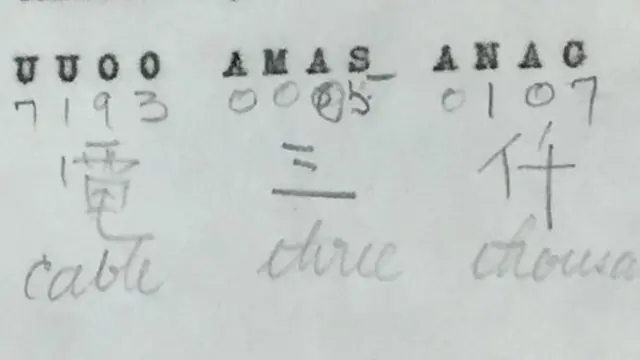 UUOO AMAS ANAG
7193 0005 0107
電 三 仟
cable three thousa